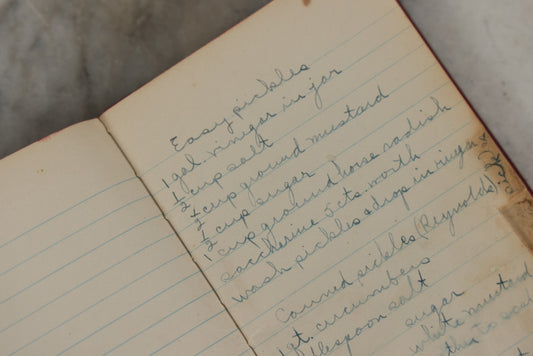 Easy pickles
1 gal. vinegar in jar
½ cup salt
½ cup ground mustard
½ cup sugar
1 cup ground horse radish
saccherine 5cts. worth
wash pickles & drop in vinegar
Canned pickles (Reynolds)
1 qt. cucumbers
lespoon salt
sugar
white mustard